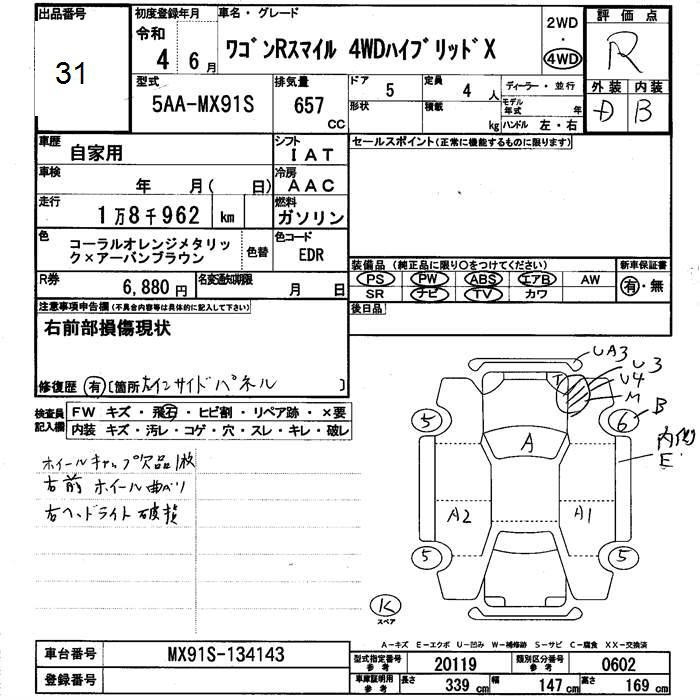 出品番号
31
初度登録年月
令和
4 6月
車名・グレード
ワゴンRスマイル 4WDハイブリッドX
2WD
・
4WD
評価点
R
外装 内装
D B
型式
5AA-MX91S
排気量
657
CC
ドア
5
定員
4 人
形状
積載
kg
ディーラー・並行
モデル年式 年
ハンドル 左・右
車歴
自家用
シフト
IAT
車検
年 月( 日)
冷房
AAC
走行
1万8千962 km
燃料
ガソリン
色
コーラルオレンジメタリック×アーバンブラウン
色替
色コード
EDR
R券
6,880円
名変通知期限
月 日
セールスポイント(正常に機能するものに限ります)
装備品 (純正品に限り○をつけてください)
PS PW ABS エアB AW
SR ナビ TV カワ
新車保証書
有・無
後日品
注意事項申告欄(不具合内容等は具体的に記入して下さい)
右前部損傷現状
修復歴 有 [箇所 左インサイドパネル ]
検査員記入欄
FW キズ・飛石・ヒビ割・リペア跡・×要
内装 キズ・汚レ・コゲ・穴・スレ・キレ・破レ
ホイールキャップ欠品1枚
右前 ホイール曲がり
右ヘッドライト破損
UA3
U3
U4
M
T
B
5
6
A
内側
E
A2
A1
5
5
K
スペア
A-キズ E-エクボ U-凹み W-補修跡 S-サビ C-腐食 XX-交換済
車台番号
MX91S-134143
登録番号
型式指定番号参考
20119
類別区分番号参考
0602
車庫証明用参考
長さ
339 cm
幅
147 cm
高さ
169 cm